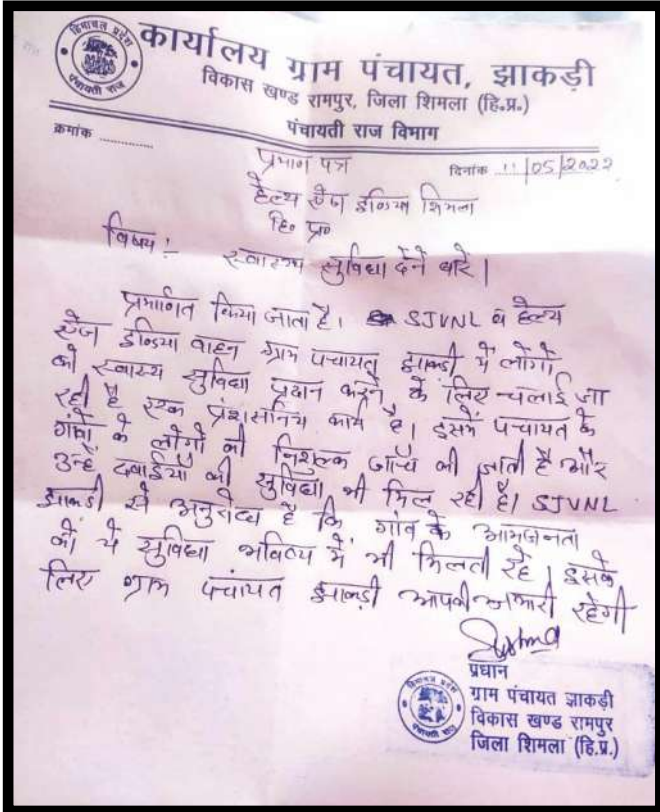 हिमाचल प्रदेश
पंचायती राज
कार्यालय ग्राम पंचायत, झाकड़ी
विकास खण्ड रामपुर, जिला शिमला (हि.प्र.)
पंचायती राज विभाग
क्रमांक ............
दिनांक 11/05/2022
प्रमाण पत्र
हैल्थ ऐज इण्डिया शिमला
हि० प्र०
विषय :- स्वास्थ्य सुविधा देने बारे।
प्रमाणित किया जाता है। SJVNL व हैल्थ
ऐज इण्डिया वाहन ग्राम पंचायत झाकड़ी में लोगों
को स्वास्थ्य सुविधा प्रदान करने के लिए चलाई जा
रही है एक प्रंशसनिय कार्य है। इसमें पंचायत के
गांवो के लोगों की निशुल्क जाँच की जाती है और
उन्हें दवाईयाँ की सुविधा भी मिल रही है। SJVNL
झाकड़ी से अनुरोध है कि गांव के आमजनता
को ये सुविधा भविष्य में भी मिलती रहे। इसके
लिए ग्राम पंचायत झाकड़ी आपकी अभारी रहेगी
प्रधान
ग्राम पंचायत झाकड़ी
विकास खण्ड रामपुर
जिला शिमला (हि.प्र.)
हिमाचल प्रदेश
पंचायती राज